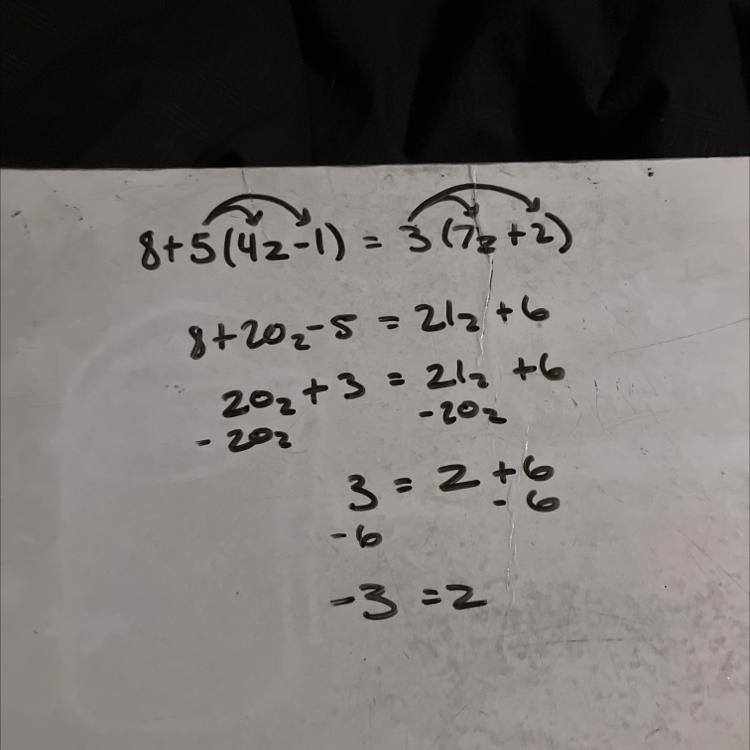 8+5(4z-1) = 3(7z+2)
8+20z-5 = 21z+6
20z+3 = 21z+6
-20z -20z
3 = z+6
-6 -6
-3 = z